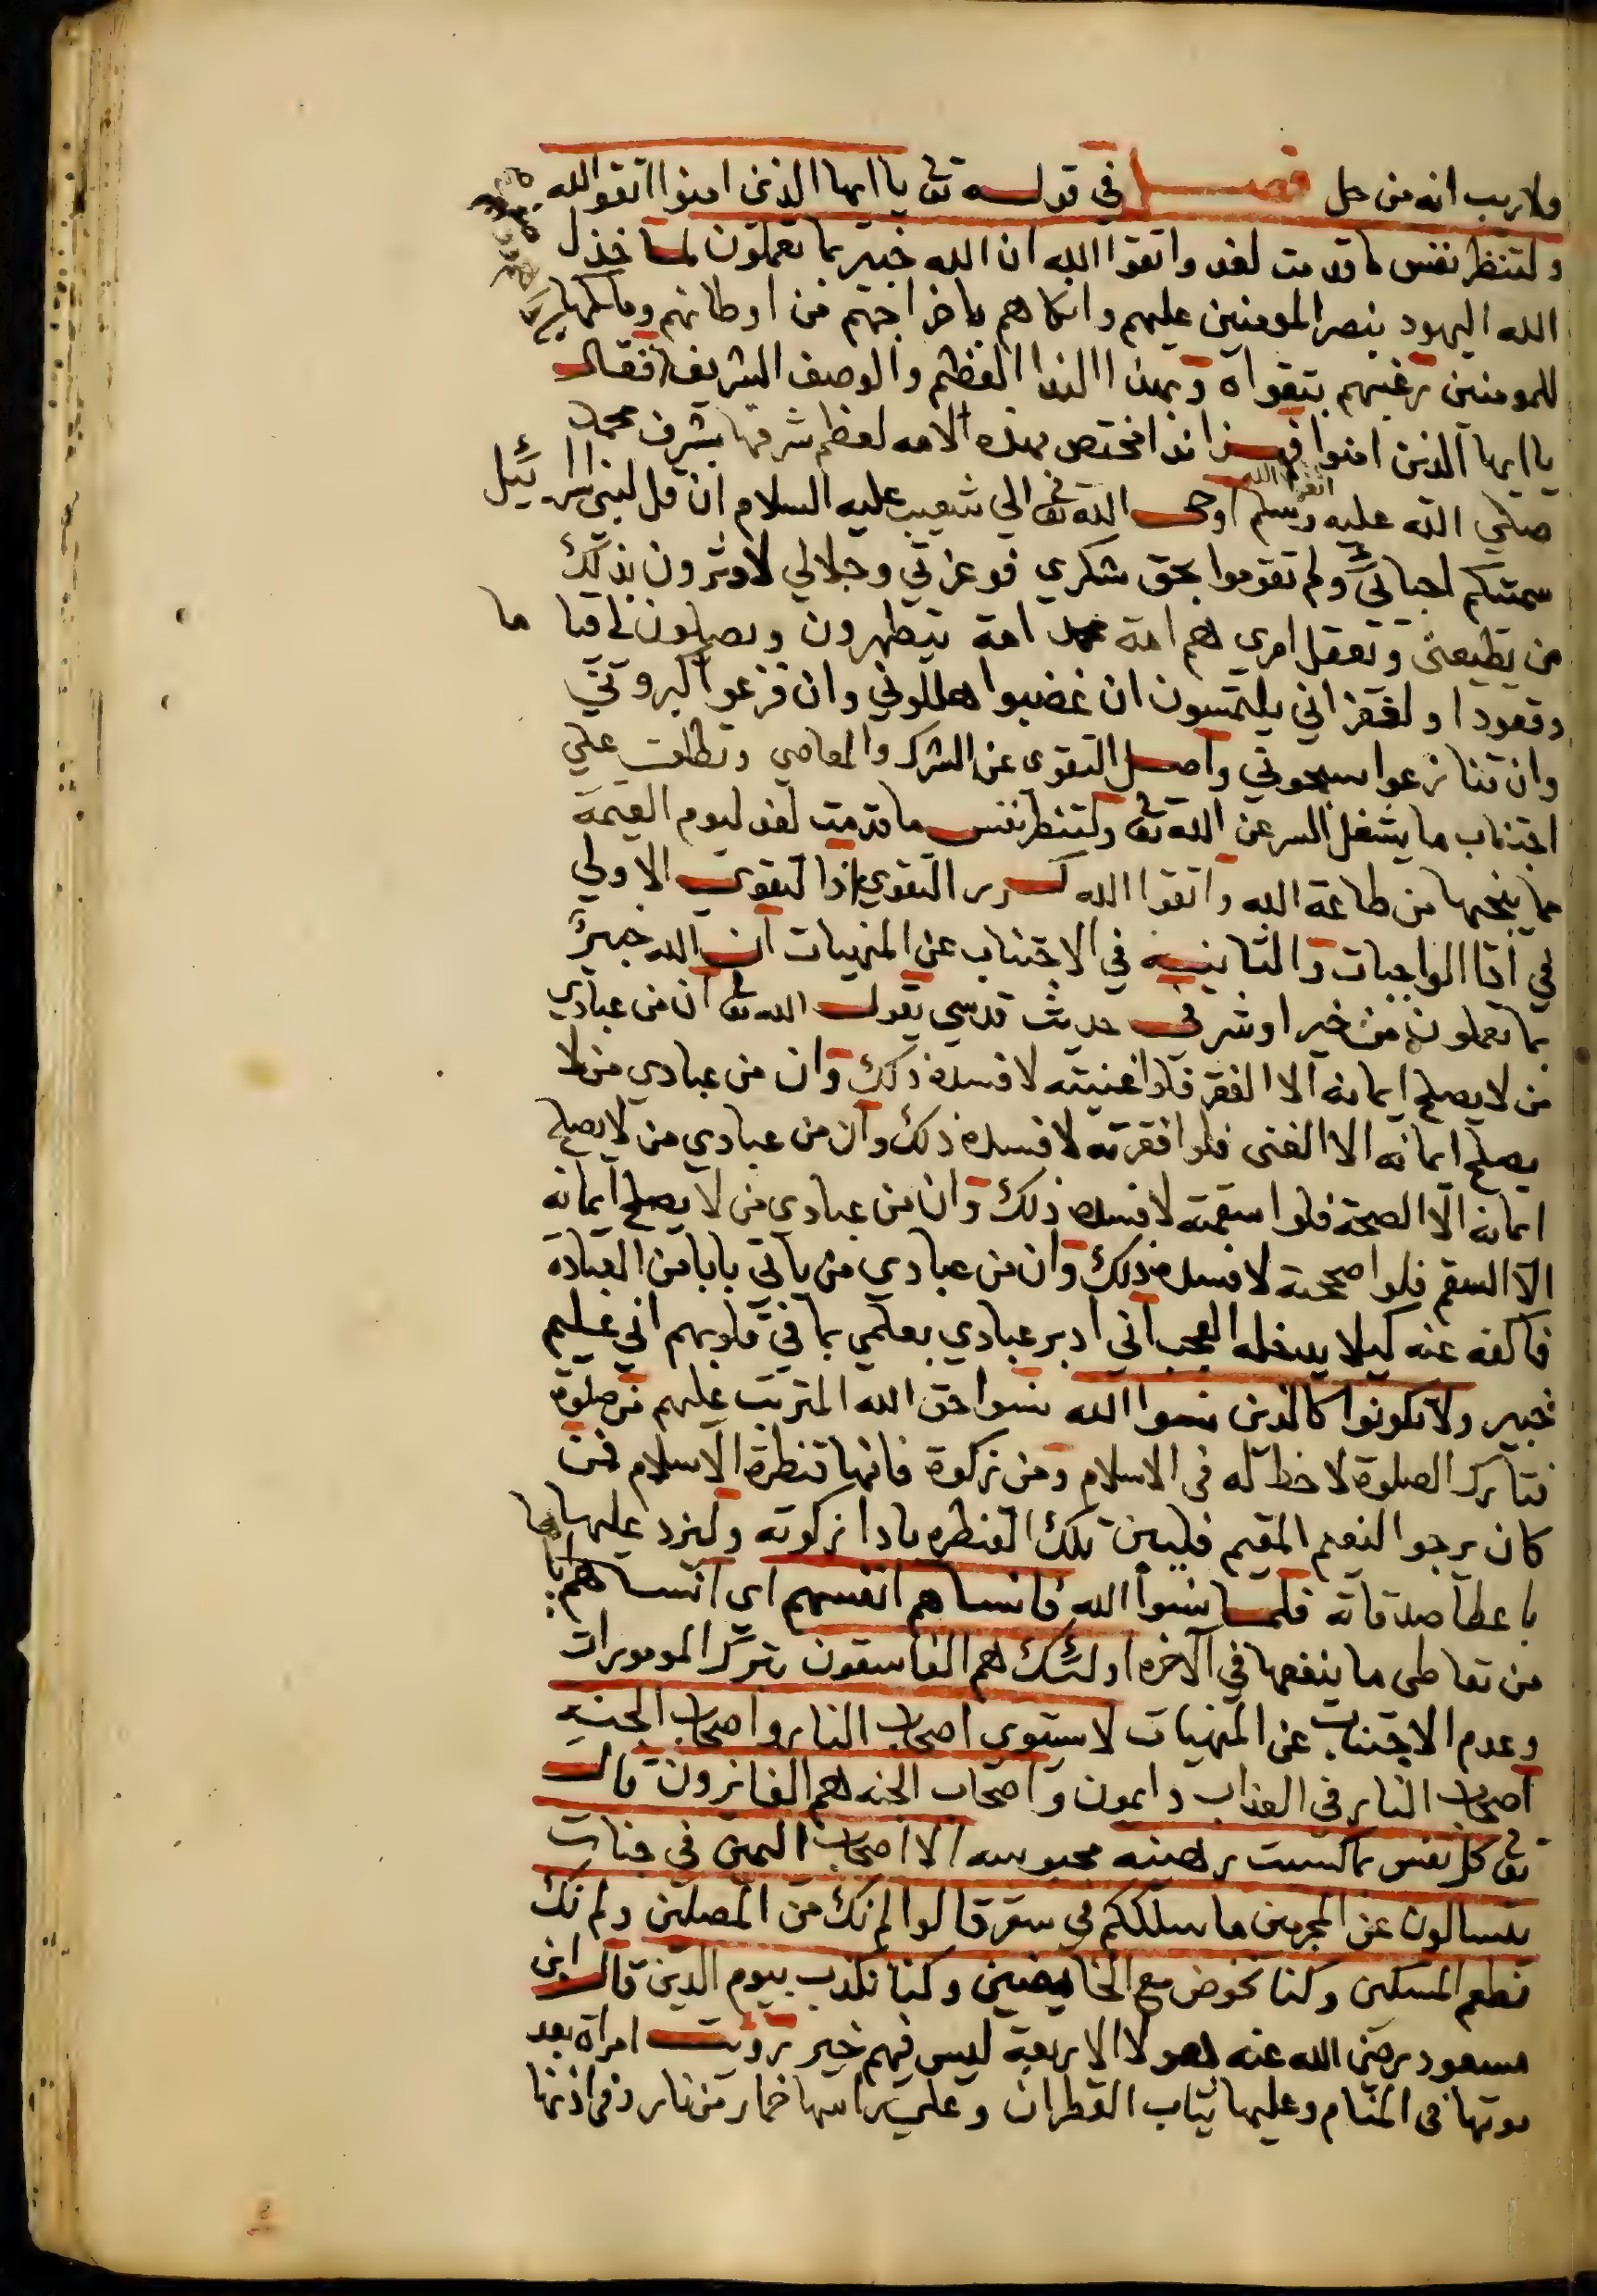 ولا ريب انه من حل فصل في قوله تعا يا ايها الذين امنوا اتقوا الله
ولتنظر نفس ما قدمت لغد واتقوا الله ان الله خبير بما تعملون لما خذل
الله اليهود بنصر المومنين عليهم وانكاهم باخراجهم من اوطانهم وملكها
للمومنين رغبهم بتقواه وبهذا الندا العظيم والوصف الشريف فقال
يا ايها الذين امنوا فهذا ندا مختص بهذه الامه لعظم شرفها بشرف محمد
اتقوا الله
صلي الله عليه وسلم اوحى الله تعا الي شعيب عليه السلام ان قل لبني اسرائيل
سميتكم احبائي ولم تقوموا بحق شكري فوعزتي وجلالي لاوثرون بذلك
من يطيعني ويعقل امري هم امة محمد امة يتطهرون ويصلون لي قياما
وقعودا ولغفراني يلتمسون ان غضبوا هللوني وان فزعوا كبروني
وان تنازعوا سبحوني واصل التقوى عن الشرك والمعاصي وتطلق علي
اجتناب ما يشغل السر عن الله تعا ولتنظر نفس ما قدمت لغد ليوم القيمة
مما ينجيها من طاعة الله واتقوا الله كرر التقوي اذا لتقوى الاولي
في ادا الواجبات والثانيه في الاجتناب عن المنهيات ان الله خبير
بما تعملون من خير او شر في حديث قدسي يقول الله تعا ان من عبادي
من لا يصلح ايمانه الا الفقر فلو اغنيته لافسده ذلك وان من عبادي من لا
يصلح ايمانه الا الغنى فلو افقرته لافسده ذلك وان من عبادي من لا يصلح
ايمانه الا الصحة فلو اسقمته لافسده ذلك وان من عبادي من لا يصلح ايمانه
الا السقم فلو اصححته لافسده ذلك وان من عبادي من ياتي بابا من العبادة
فاكفه عنه كيلا يدخله العجب اني ادبر عبادي بعلمي بما في قلوبهم اني عليم
خبير ولا تكونوا كالذين نسوا الله نسوا حق الله المترتب عليهم من صلوة
فتارك الصلوة لا حظ له في الاسلام ومن زكوة فانها قنطرة الاسلام فمن
كان يرجو النعيم المقيم فليبن تلك القنطره بادا زكوته وليزد عليها
باعطا صدقاته فلما نسوا الله فانساهم انفسهم اي انساهم
من تعاطى ما ينفعها في الاخره اولئك هم الفاسقون بترك المومورات
وعدم الاجتناب عن المنهيات لا يستوي اصحاب النار واصحاب الجنه
اصحاب النار في العذاب دايمون واصحاب الجنه هم الفائزون قال
تعا كل نفس بما كسبت رهينه محبوسه الا اصحاب اليمين في جنات
يتسالون عن المجرمين ما سلككم في سقر قالوا لم نك من المصلين ولم نك
نطعم المسكين وكنا نخوض مع الخايضين وكنا نكذب بيوم الدين قال ابن
مسعود رضي الله عنه هولا الاربعة ليس فيهم خير رويت امراة بعد
موتها في المنام وعليها ثياب القطران وعلي راسها خمار من نار وفي اذنها